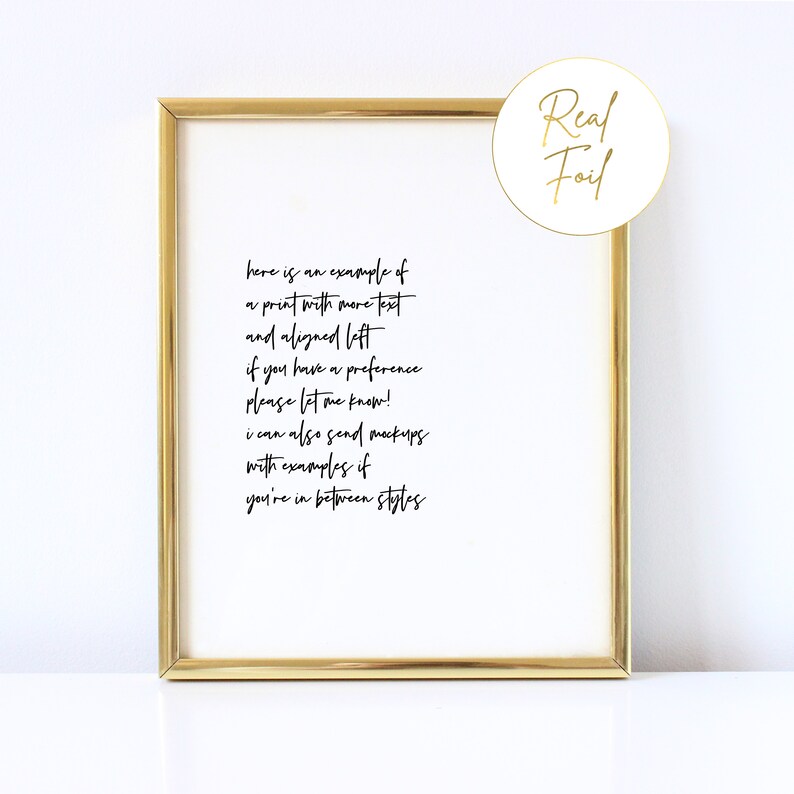 Real
Foil
here is an example of
a print with more text
and aligned left
if you have a preference
please let me know!
i can also send mockups
with examples if
you're in between styles